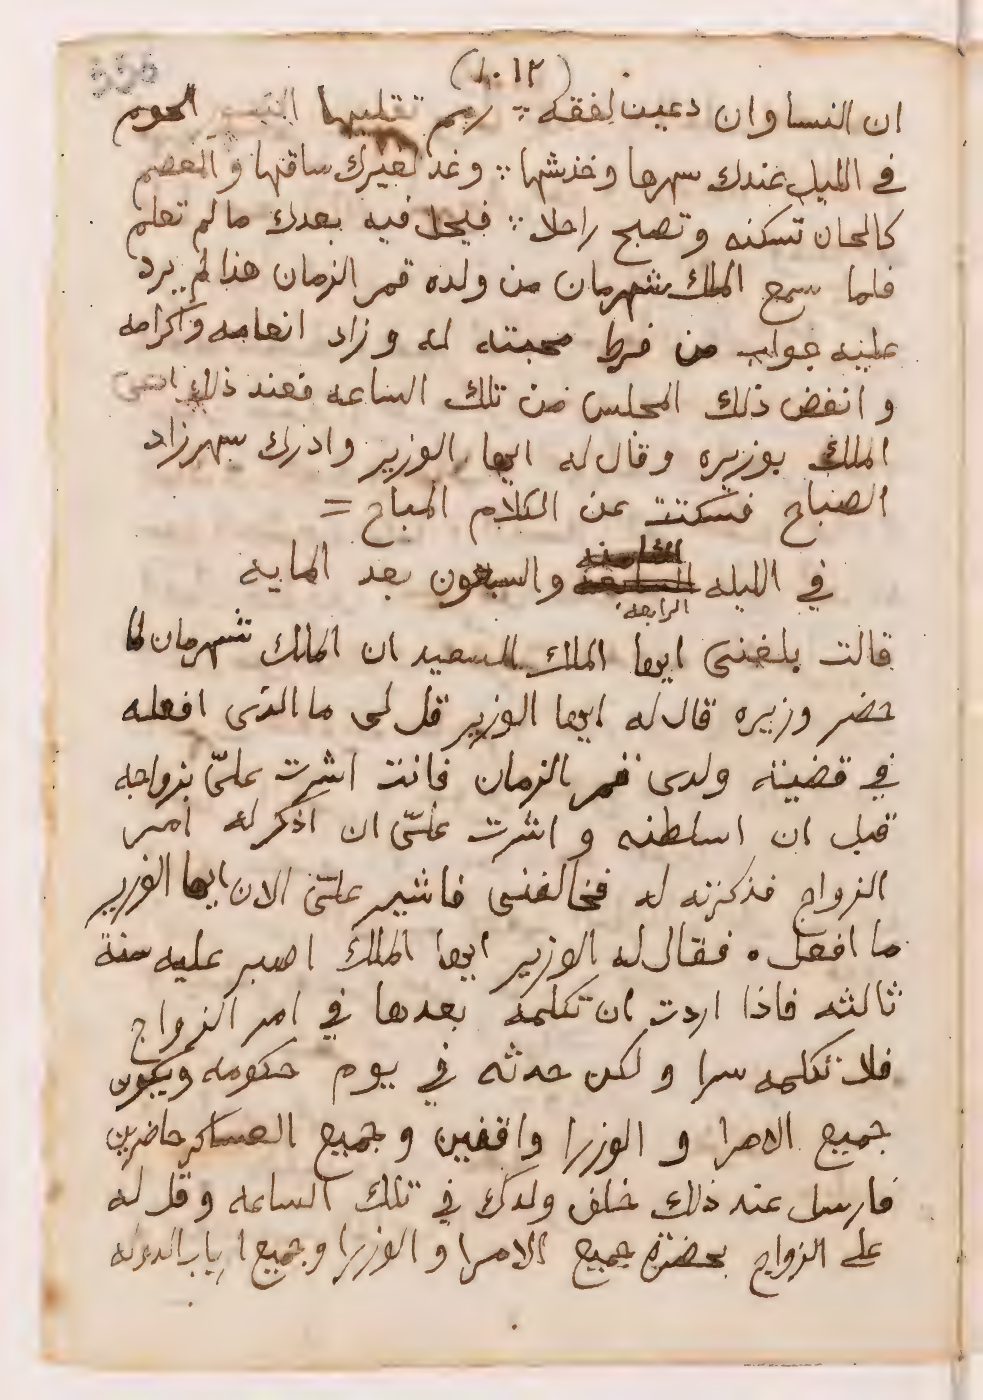 556
(١٠١٢)
ان النسا وان دعين لعفه ∴ رمم تقلبها النسور الحوم
في الليل عندك سرها وخدشها ∴ وغد لغيرك ساقها والمعصم
كالحان تسكنه وتصبح راحلا ∴ فيحل فيه بعدك مالم تعلم
فلما سمع الملك شهرمان من ولده قمر الزمان هذا لم يرد
عليه جواب من فرط محبته له وزاد انعامه واكرامه
وانفض ذلك المجلس من تلك الساعه فعند ذلك
الملك بوزيره وقال له ايها الوزير وادرك سهرزاد
الصباح فسكتت عن الكلام المباح =
في الليله الرابعه والسبعون بعد المايه
قالت بلغنى ايها الملك السعيد ان الملك شهرمان لما
حضر وزيره قال له ايها الوزير قل لى ما الذى افعله
في قضية ولدى قمر الزمان فانت اشرت علىّ بزواجه
قبل ان اسلطنه واشرت علىّ ان اذكر له امر
الزواج فذكرته له فخالفنى فاشير علىّ الان ايها الوزير
ما افعل ه فقال له الوزير ايها الملك اصبر عليه سنة
ثالثه فاذا اردت ان تكلمه بعدها في امر الزواج
فلا تكلمه سرا ولكن حدثه في يوم حكومه ويكون
جميع الامرا و الوزرا واقفين وجميع العساكر حاضرين
فارسل عند ذلك خلف ولدك في تلك الساعه وقل له
على الزواج بحضرة جميع الامرا و الوزرا وجميع ارباب الدوله